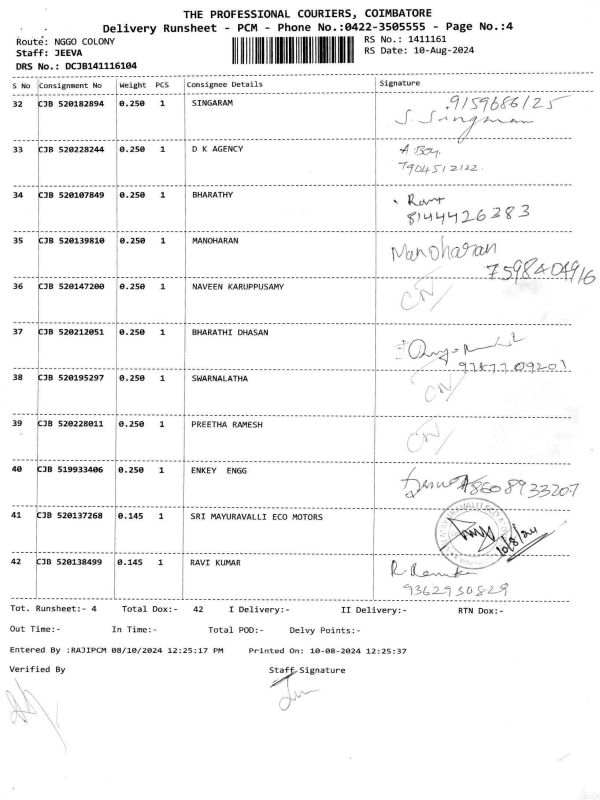 THE PROFESSIONAL COURIERS, COIMBATORE
Delivery Runsheet - PCM - Phone No.:0422-3505555 - Page No.:4
Route: NGGO COLONY
RS No.: 1411161
Staff: JEEVA
RS Date: 10-Aug-2024
DRS No.: DCJB141116104
S No Consignment No Weight PCS Consignee Details Signature
32 CJB 520182894 0.250 1 SINGARAM 9159686125
33 CJB 520228244 0.250 1 D K AGENCY
7904512122.
34 CJB 520107849 0.250 1 BHARATHY
8144426383
35 CJB 520139810 0.250 1 MANOHARAN Manoharan
7598404916
36 CJB 520147200 0.250 1 NAVEEN KARUPPUSAMY CN
37 CJB 520212051 0.250 1 BHARATHI DHASAN
38 CJB 520195297 0.250 1 SWARNALATHA CN
39 CJB 520228011 0.250 1 PREETHA RAMESH CN
40 CJB 519933406 0.250 1 ENKEY ENGG 8608933207
41 CJB 520137268 0.145 1 SRI MAYURAVALLI ECO MOTORS
10/8/24
42 CJB 520138499 0.145 1 RAVI KUMAR
9362930829
Tot. Runsheet:- 4 Total Dox:- 42 I Delivery:- II Delivery:- RTN Dox:-
Out Time:- In Time:- Total POD:- Delvy Points:-
Entered By :RAJIPCM 08/10/2024 12:25:17 PM Printed On: 10-08-2024 12:25:37
Verified By Staff Signature